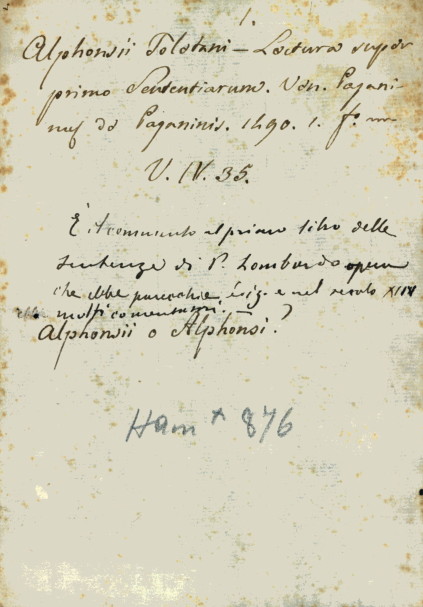 1.
Alphonsii Toletani — Lectura super
primo Sententiarum. Ven. Pagani-
nus de Paganinis. 1490. 1. f.º
V. IV. 35.
È il commento al primo libro delle
sentenze di P. Lombardo opera
che ebbe parecchie e nel secolo XIII
molti
Alphonsii o Alphonsi?
Ham * 876